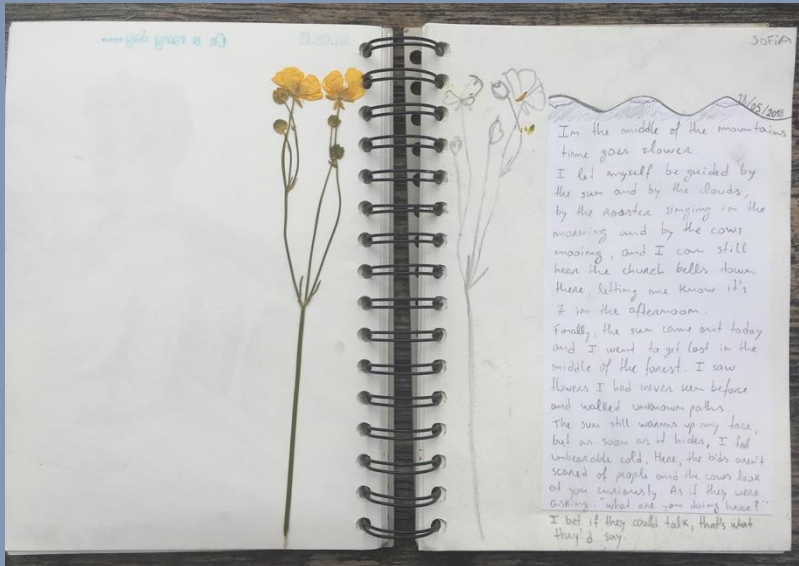 On a rainy day
SOFIA
28/05/2018
In the middle of the mountains
time goes slower
I let myself be guided by
the sun and by the clouds,
by the rooster singing in the
morning and by the cows
mooing, and I can still
hear the church bells down
there, letting me know it's
7 in the afternoon.
Finally, the sun came out today
and I went to get lost in the
middle of the forest. I saw
flowers I had never seen before
and walked unknown paths.
The sun still warms up my face,
but as soon as it hides, I feel
unbearable cold. Here, the bids aren't
scared of people and the cows look
at you curiously. As if they were
asking "what are you doing here?"
I bet if they could talk, that's what
they'd say.